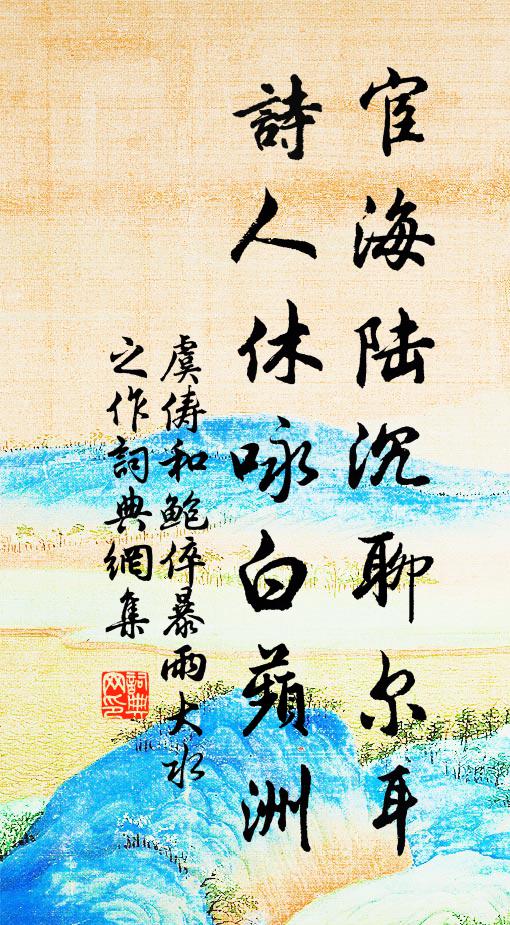 宦海陆沉聊尔耳
詩人休咏白蘋洲
虞俦和鲍倅暴雨大水
之作詞典網集
詞典網印